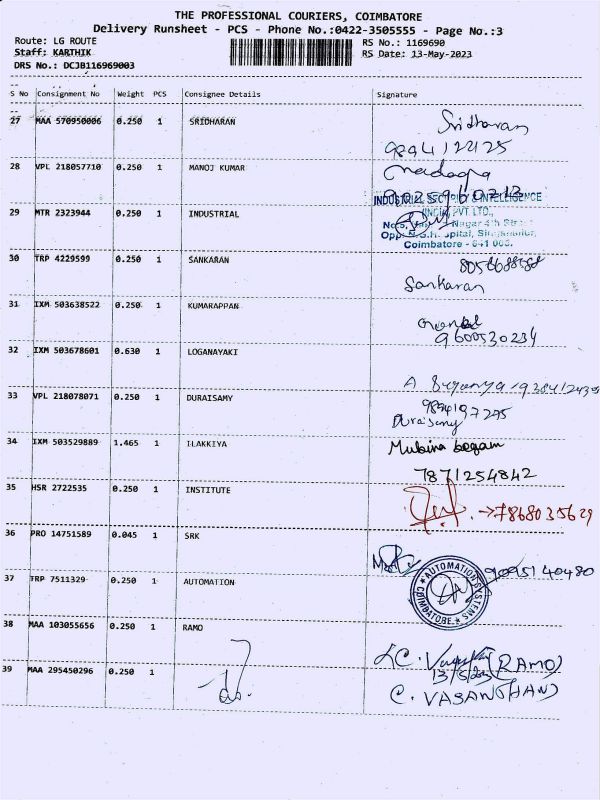 THE PROFESSIONAL COURIERS, COIMBATORE
Delivery Runsheet - PCS - Phone No.:0422-3505555 - Page No.:3
Route: LG ROUTE RS No.: 1169690
Staff: KARTHIK RS Date: 13-May-2023
DRS No.: DCJB116969003
S No Consignment No Weight PCS Consignee Details Signature
27 MAA 570950006 0.250 1 SRIDHARAN Sridharan
9894122125
28 VPL 218057710 0.250 1 MANOJ KUMAR
INDUSTRIAL SECURITY & INTELLIGENCE
29 MTR 2323944 0.250 1 INDUSTRIAL (INDIA) PVT. LTD.,
Nagar 4th Street
Opp. Hospital, Singanallur,
Coimbatore - 641 005.
30 TRP 4229599 0.250 1 SANKARAN
Sankaran
31 IXM 503638522 0.250 1 KUMARAPPAN
9600530234
32 IXM 503678601 0.630 1 LOGANAYAKI
A Suganya
33 VPL 218078071 0.250 1 DURAISAMY 9894197295
Duraisamy
34 IXM 503529889 1.465 1 ILAKKIYA Mubina begam
7871254842
35 HSR 2722535 0.250 1 INSTITUTE → 7868035629
36 PRO 14751589 0.045 1 SRK
9095140480
37 TRP 7511329 0.250 1 AUTOMATION AUTOMATION SYSTEMS
COIMBATORE.
38 MAA 103055656 0.250 1 RAMO
(RAMO)
13/5/2023
39 MAA 295450296 0.250 1 do. C. VASANTHAND